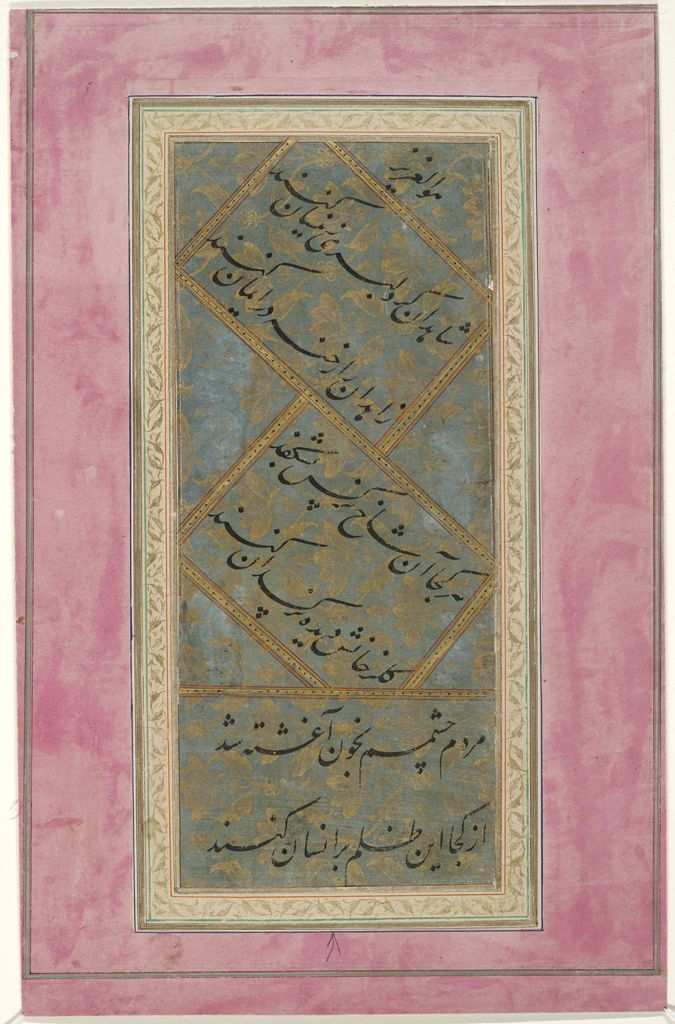 هوالعزیز
شاهدان کر دلبری زینسان کنند
زاهدانرا رخنه در ایمان کنند
هر کجا آن شاخ نرکس بشکفد
کلرخانش دیده نرکسدان کنند
مردم چشمم بخون آغشته شد
از کجا این ظلم بر انسان کنند